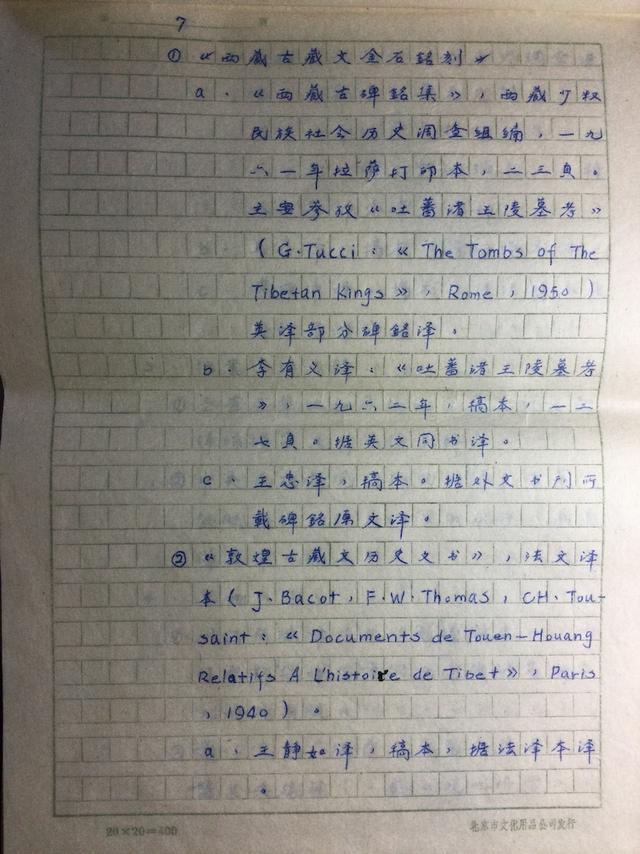 7
① 《西藏古藏文金石銘刻》
a.《西藏古碑銘集》，西藏少数
民族社会历史调查组编，一九
六一年拉萨打印本，二三頁。
主要参攷《吐蕃诸王陵墓考》
（G.Tucci：《The Tombs of The
Tibetan Kings》，Rome，1950）
英译部分碑銘译。
b. 李有义译：《吐蕃诸王陵墓考
》，一九六二年，稿本，一二
七頁。据英文同书译。
c. 王忠译，稿本。据外文书刊所
載碑銘原文译。
② 《敦煌古藏文历史文书》，法文译
本（J.Bacot，F.W.Thomas，CH.Tou-
saint：《Documents de Touen-Houang
Relatifs A L'histoire de Tibet》，Paris
，1940）。
a. 王静如译，稿本，据法译本译
。
20×20=400
北京市文化用品公司发行